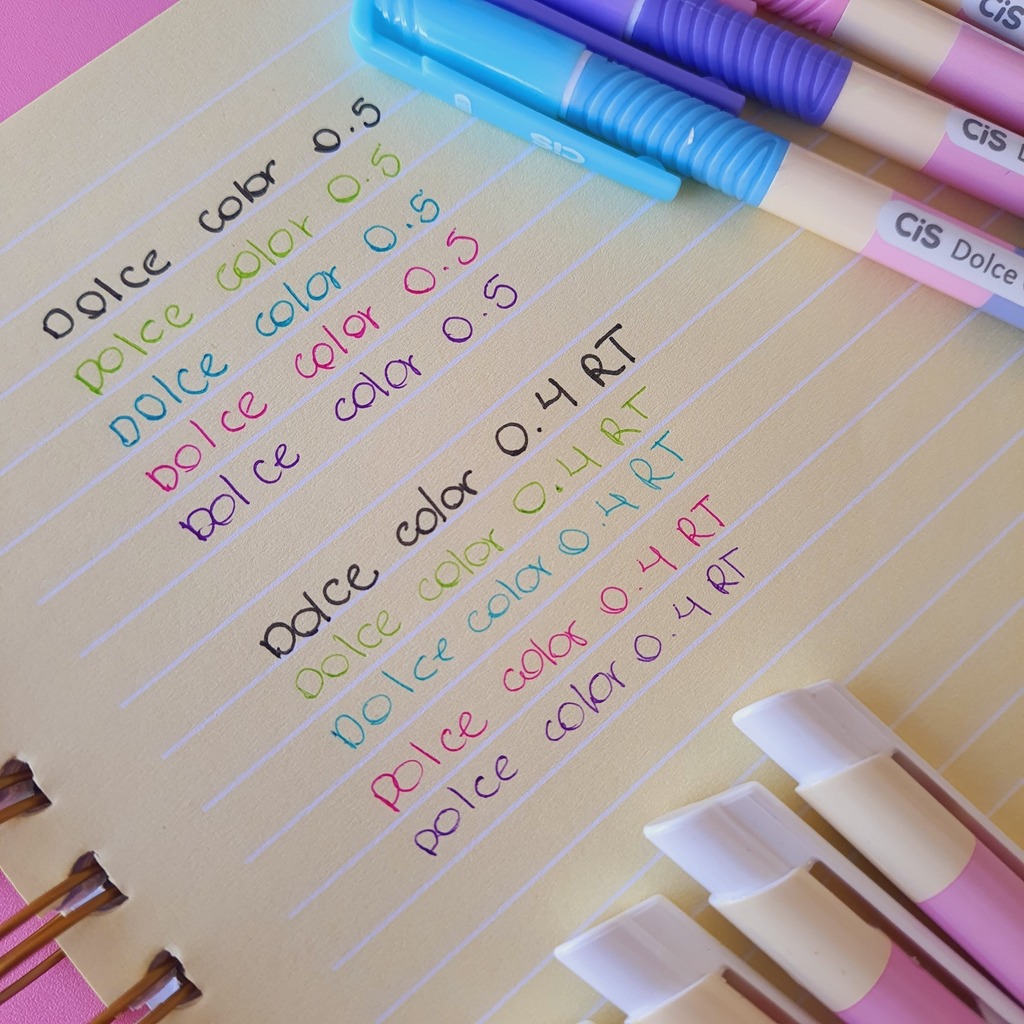 Dolce color 0.5
Dolce color 0.5
Dolce color 0.5
Dolce color 0.5
Dolce color 0.5
Dolce color 0.4 RT
Dolce color 0.4 RT
Dolce color 0.4 RT
Dolce color 0.4 RT
Dolce color 0.4 RT
CiS
CiS
CiS Dolce
cis